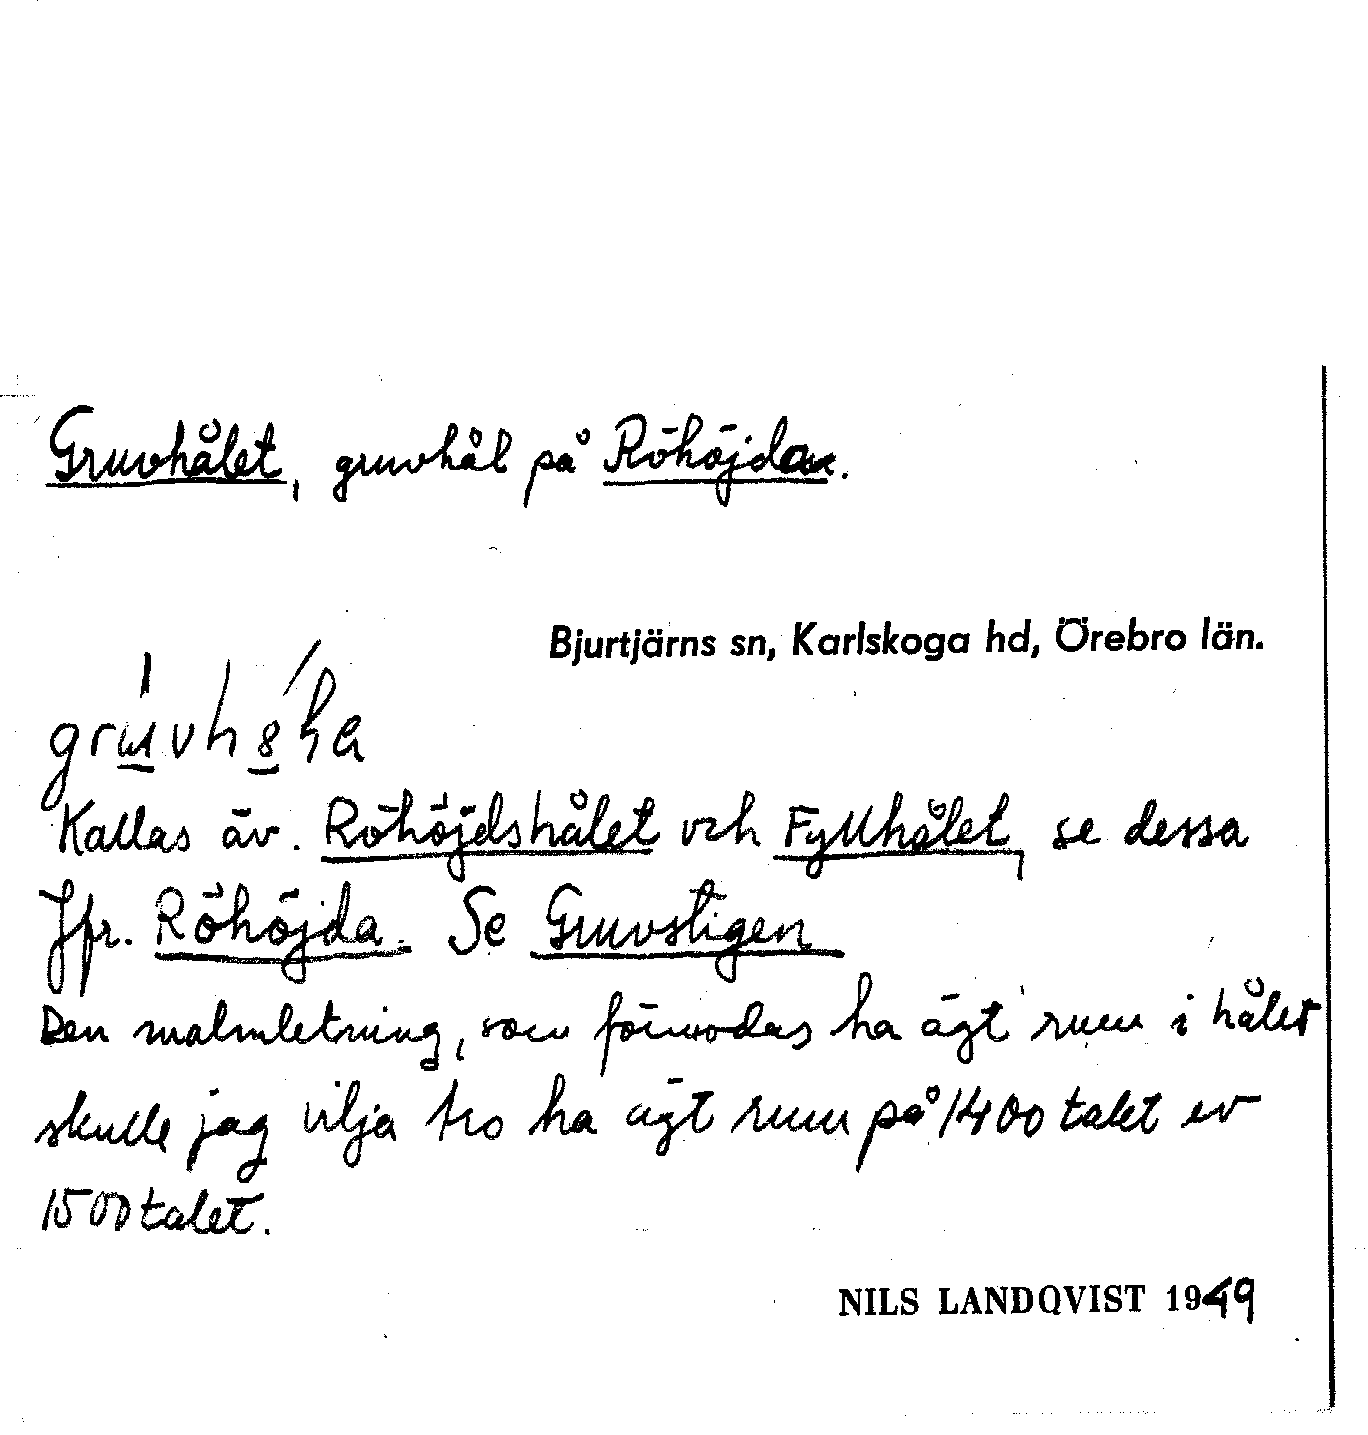 Gruvhålet, gruvhål på Röhöjda.
Bjurtjärns sn, Karlskoga hd, Örebro län.
Kallas äv. Röhöjdshålet och Fyllhålet, se dessa
Jfr. Röhöjda. Se Gruvstigen
Den malmletning, som förmodas ha ägt rum i hålet
skulle jag vilja tro ha ägt rum på 1400 talet ev
1500 talet.
NILS LANDQVIST 1949